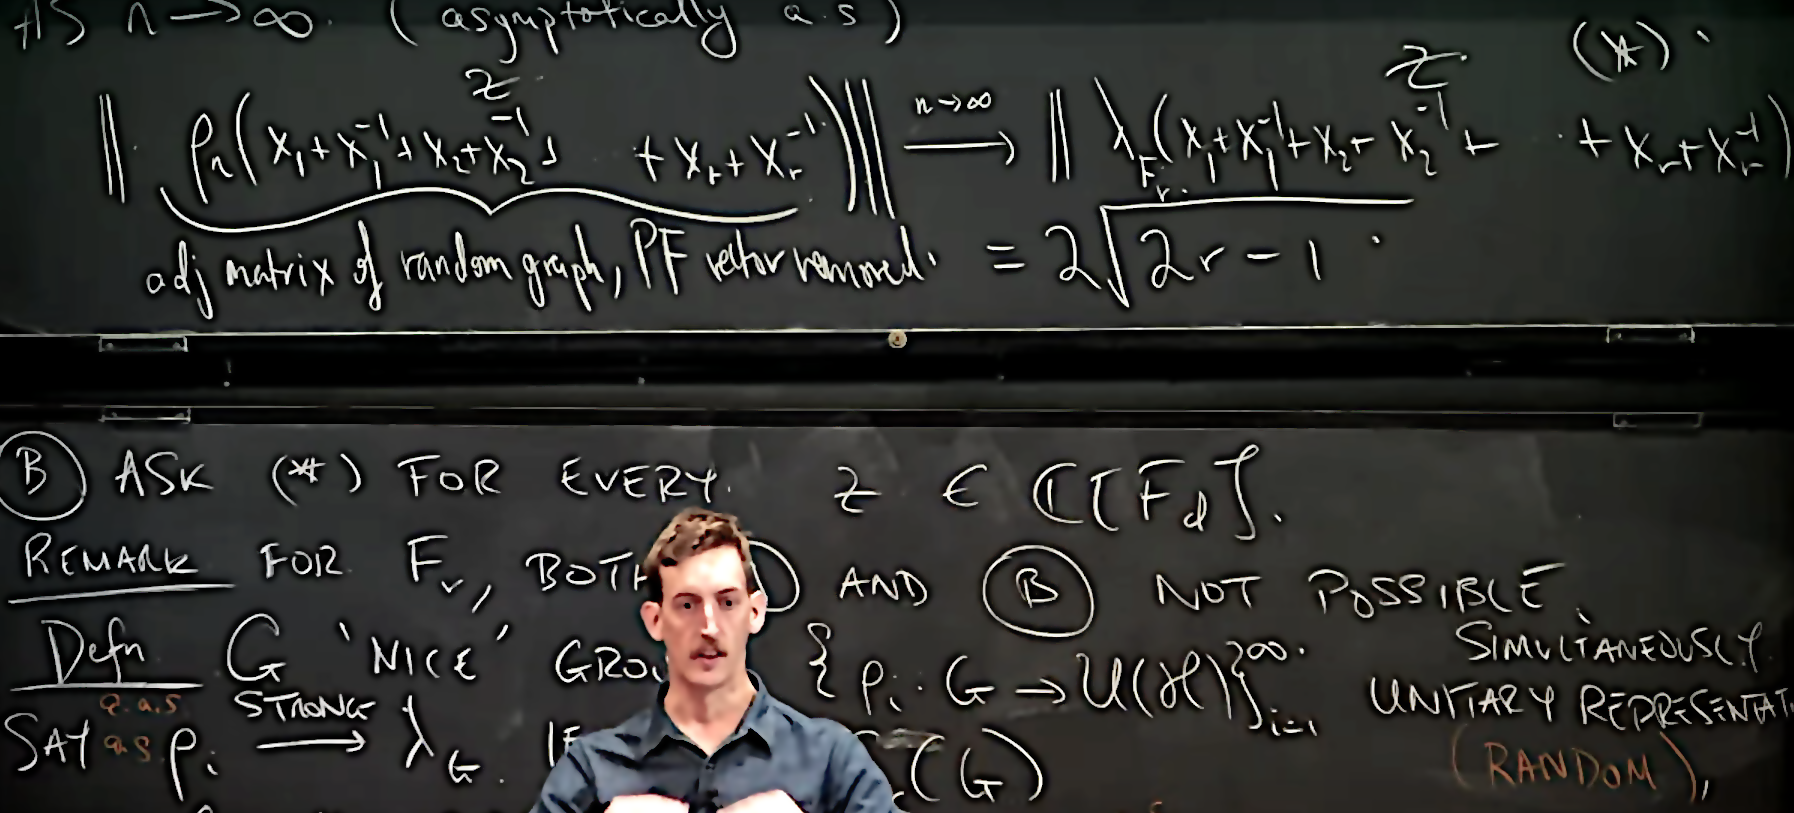 AS n → ∞. (asymptotically a.s)
z z (*).
‖ ρ_n(x_1 + x_1^{-1} + x_2 + x_2^{-1} + + x_r + x_r^{-1}) ‖ n→∞ ⟶ ‖ λ_{F_r}(x_1 + x_1^{-1} + x_2 + x_2^{-1} + · + x_r + x_r^{-1})
adj matrix of random graph, PF vector removed. = 2√(2r - 1).
Ⓑ ASK (*) FOR EVERY. z ∈ ℂ[F_d].
REMARK FOR F_r, BOTH AND Ⓑ NOT POSSIBLE
SIMULTANEOUSLY.
Defn G 'NICE' GROU {ρ_i : G → U(ℋ)}_{i=1}^∞. UNITARY REPRESENTAT
(RANDOM),
SAY a.a.s a.s. ρ_i STRONG ⟶ λ_G. IF (G)